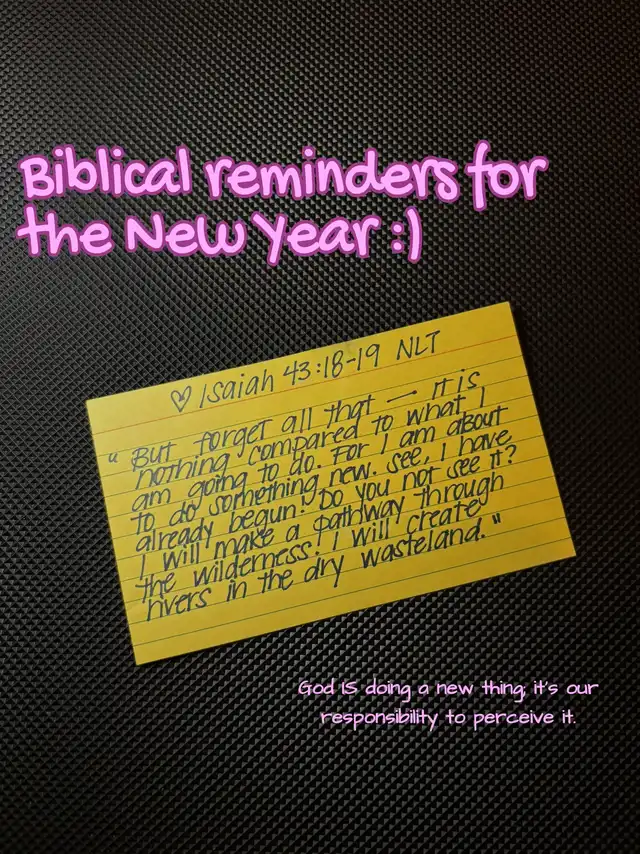 Biblical reminders for
the New Year :)
♡ Isaiah 43:18-19 NLT
" But forget all that — it is
nothing compared to what I
am going to do. For I am about
to do something new. See, I have
already begun! Do you not see it?
I will make a pathway through
the wilderness. I will create
rivers in the dry wasteland."
God IS doing a new thing; it's our
responsibility to perceive it.